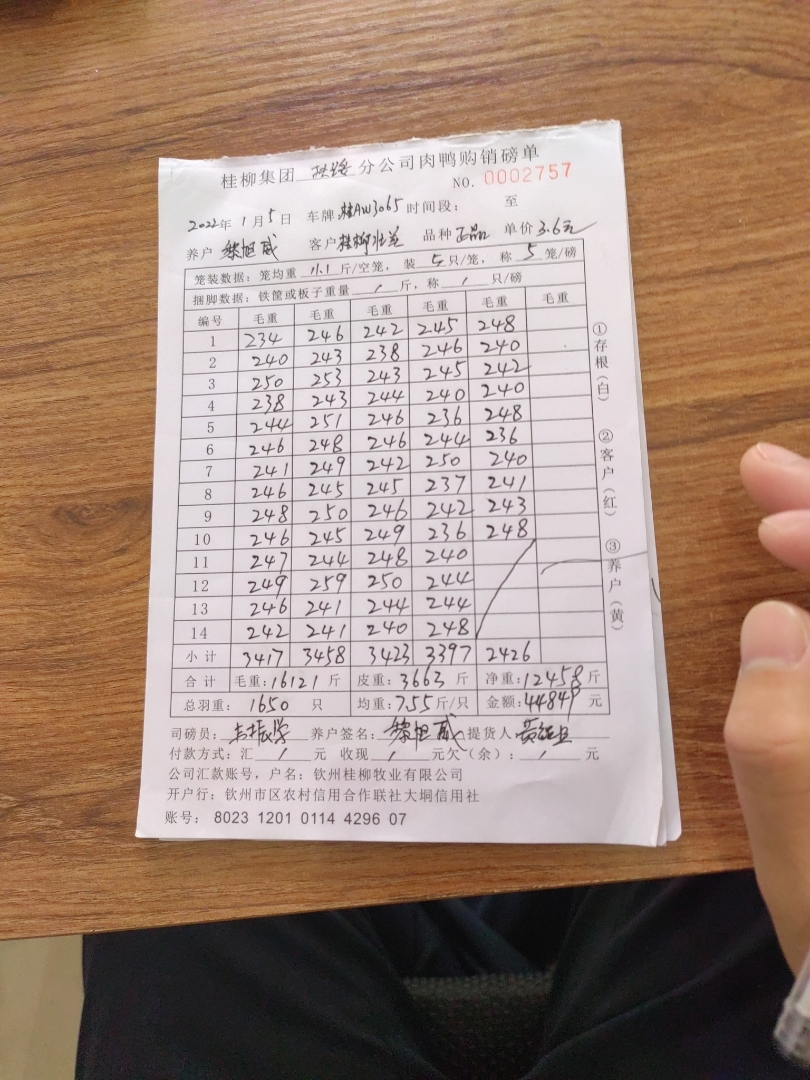 桂柳集团 扶绥 分公司肉鸭购销磅单
NO. 0002757
2022年 1月 5日 车牌 桂AW3065 时间段： 至
养户 黎旭威 客户 桂柳壮差 品种 正品 单价 3.6元
笼装数据：笼均重 11.1 斤/空笼，装 5 只/笼，称 5 笼/磅
捆脚数据：铁筐或板子重量 / 斤，称 / 只/磅
编号 毛重 毛重 毛重 毛重 毛重 毛重
1 234 246 242 245 248
2 240 243 238 246 240
3 250 253 243 245 242
4 238 243 244 240 240
5 244 251 246 236 248
6 246 248 246 244 236
7 241 249 242 250 240
8 246 245 245 237 241
9 248 250 246 242 243
10 246 245 249 236 248
11 247 244 248 240
12 249 259 250 244
13 246 241 244 244
14 242 241 240 248
小计 3417 3458 3423 3397 2426
合计 毛重：16121 斤 皮重：3663 斤 净重：12458 斤
总羽重： 1650 只 均重：7.55 斤/只 金额：44849 元
司磅员： 养户签名：黎旭威 提货人
付款方式：汇 / 元 收现 / 元欠（余）： / 元
公司汇款账号，户名：钦州桂柳牧业有限公司
开户行：钦州市区农村信用合作联社大垌信用社
账号： 8023 1201 0114 4296 07
①存根（白）
②客户（红）
③养户（黄）